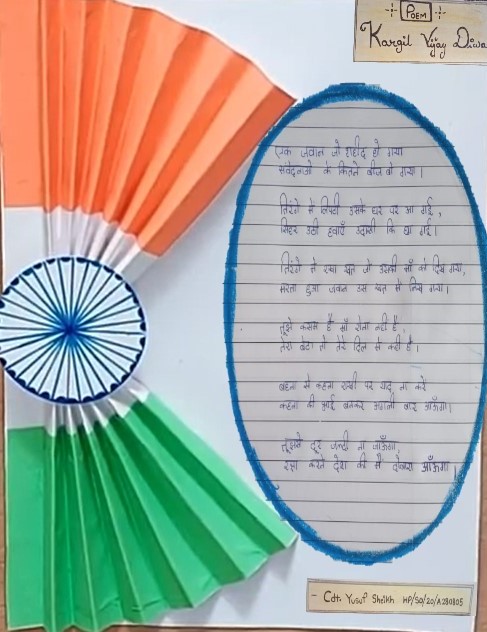 POEM
Kargil Vijay Diwa
एक जवान जो शहीद हो गया
संवेदनाओ के कितने बीज बो गया।
तिरंगे में लिपटी उसके घर पर आ गई,
सिहर उठी हवाएँ उदासी कि छा गई।
तिरंगे में रखा खत जो उसकी माँ को दिख गया,
मरता हुआ जवान उस खत में लिख गया।
तुझे कसम है माँ रोना नही है,
तेरा बेटा तो तेरे दिल में कही है।
बहना से कहना राखी पर याद ना करे
कहना की भाई बनकर अगली बार आऊँगा।
तुझसे दूर जल्दी ना जाऊँगा,
रक्षा करने देश की मैं दोबारा आऊँगा।
- Cdt. Yusuf Sheikh HP/SD/20/A280805